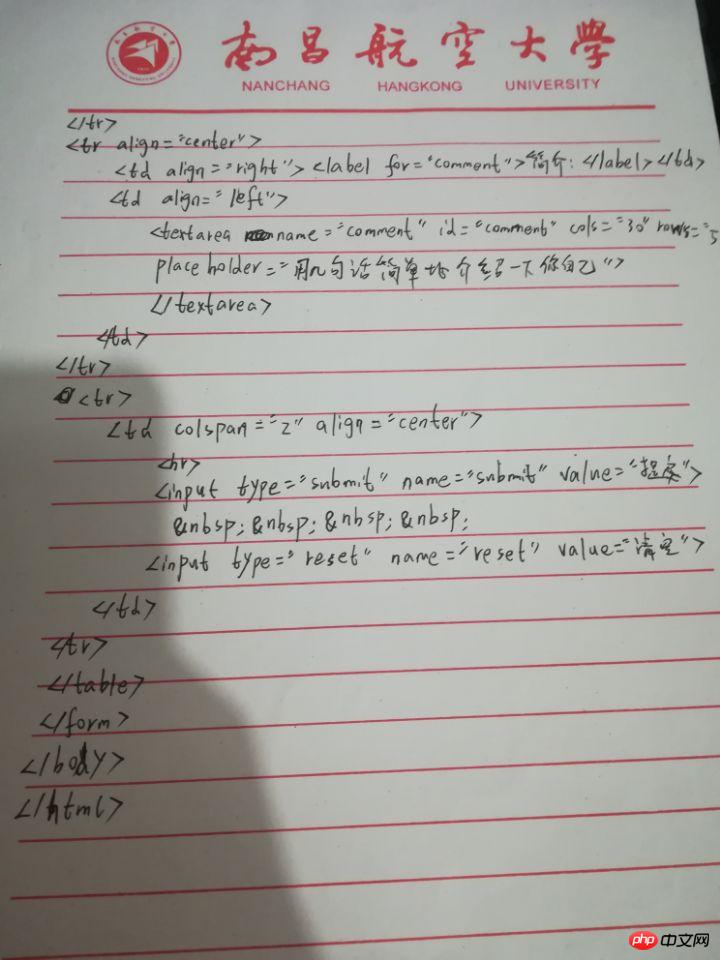 南昌航空大學
NANCHANG HANGKONG UNIVERSITY
</tr>
<tr align="center">
<td align="right"> <label for="comment">简介: </label> </td>
<td align="left">
<textarea name="comment" id="comment" cols="30" rows="5
placeholder="用几句话简单地介绍一下你自己">
</textarea>
</td>
</tr>
<tr>
<td colspan="2" align="center">
<hr>
<input type="submit" name="submit" value="提交">
&nbsp; &nbsp; &nbsp; &nbsp;
<input type="reset" name="reset" value="清空">
</td>
</tr>
</table>
</form>
</body>
</html>
php 中文网